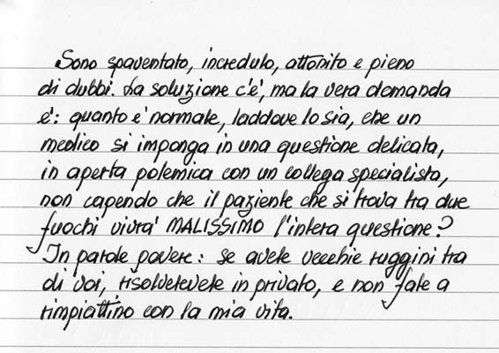 Sono spaventato, incredulo, attonito e pieno
di dubbi. La soluzione c'è, ma la vera domanda
è: quanto è normale, laddove lo sia, che un
medico si imponga in una questione delicata,
in aperta polemica con un collega specialista,
non capendo che il paziente che si trova tra due
fuochi vivrà MALISSIMO l'intera questione?
In parole povere: se avete vecchie ruggini tra
di voi, risolvetevele in privato, e non fate a
rimpiattino con la mia vita.